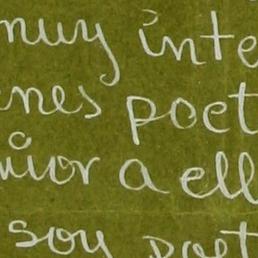 muy inte
enes poet
uior a ell
soy poet